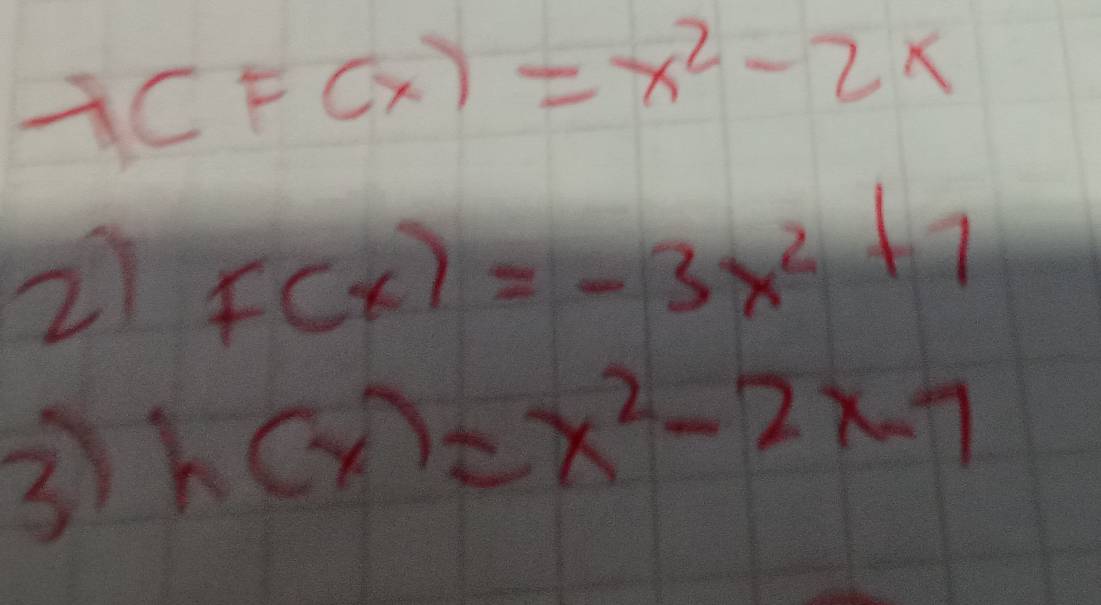 1( F(x) = x² - 2x
2) F(x) = -3x² + 1
3) h(x) = x² - 2x - 1